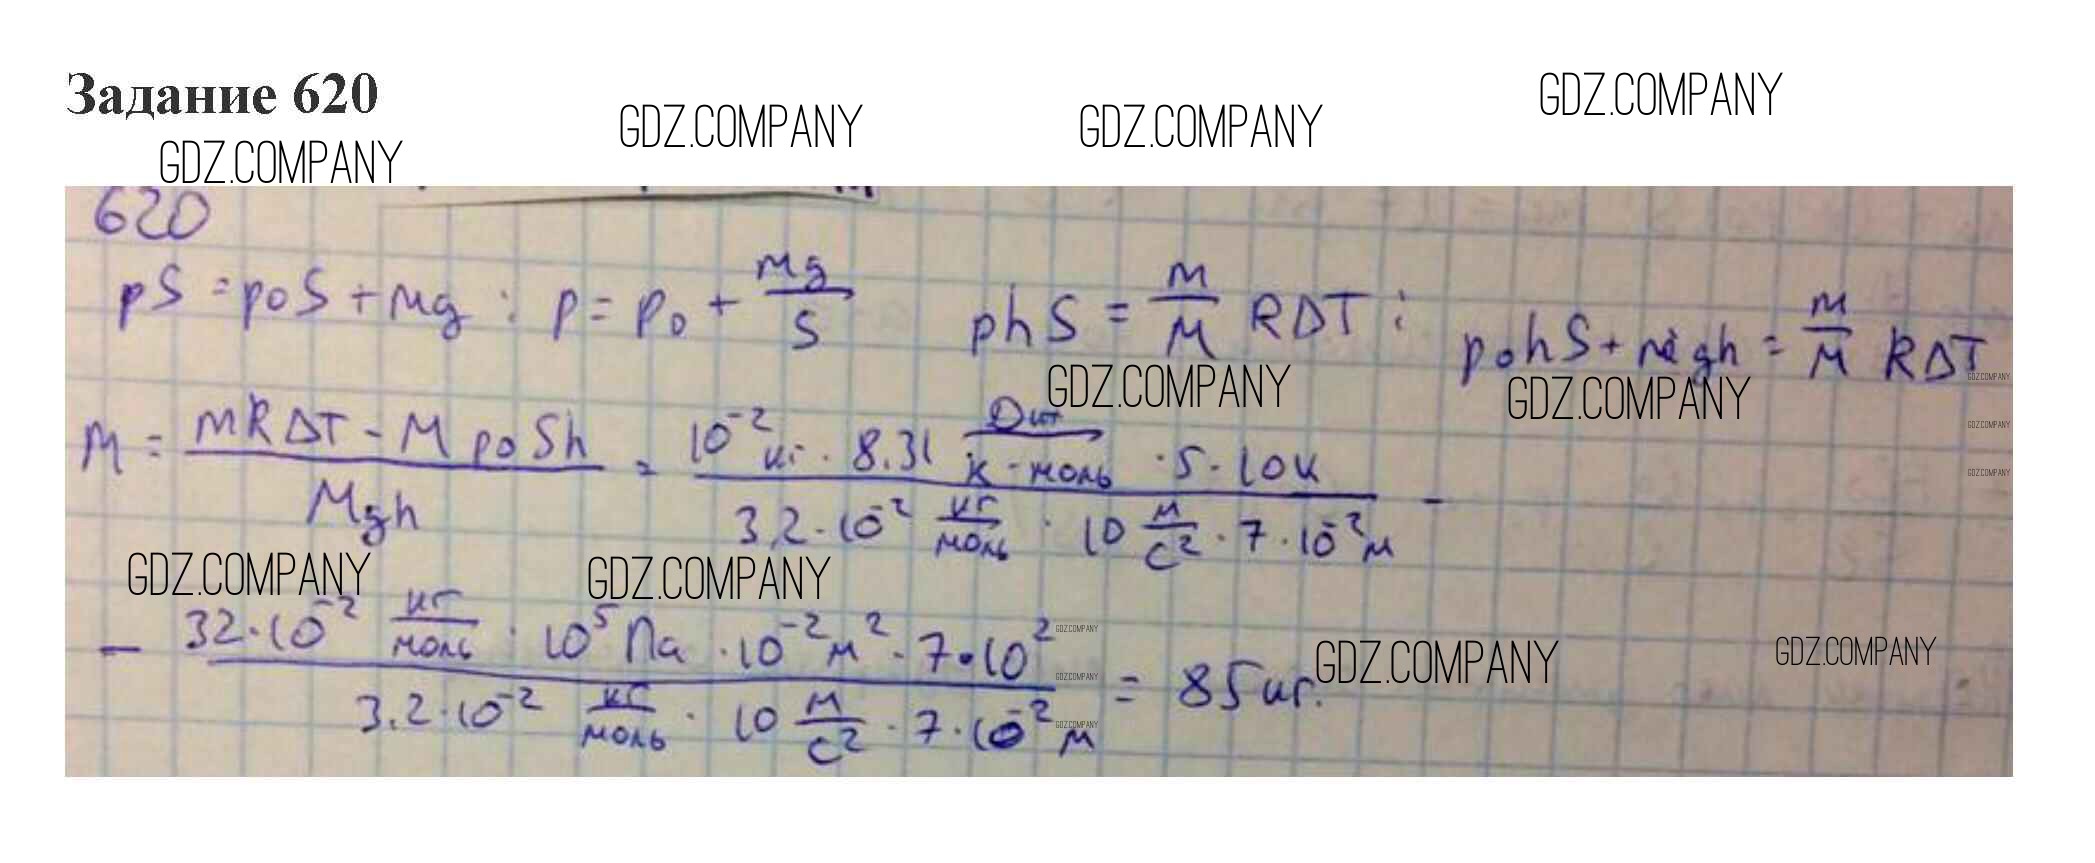 Задание 620
GDZ.COMPANY GDZ.COMPANY GDZ.COMPANY GDZ.COMPANY
620
pS = p₀S + Mg : p = p₀ + Mg/S phS = m/M RΔT : p₀hS + Mgh = m/M RΔT
GDZ.COMPANY GDZ.COMPANY GDZ.COMPANY
GDZ.COMPANY
GDZ.COMPANY
M = (mRΔT - M p₀Sh)/(Mgh) = (10⁻² кг · 8.31 Дж/(К · моль) · 5 · 10К)/(3,2 · 10⁻² кг/моль · 10 м/с² · 7 · 10⁻² м) -
GDZ.COMPANY GDZ.COMPANY
- (32 · 10⁻² кг/моль · 10⁵ Па · 10⁻² м² · 7 · 10²)/(3.2 · 10⁻² кг/моль · 10 м/с² · 7 · 10⁻² м) = 85 кг.
GDZ.COMPANY GDZ.COMPANY GDZ.COMPANY
GDZ.COMPANY
GDZ.COMPANY